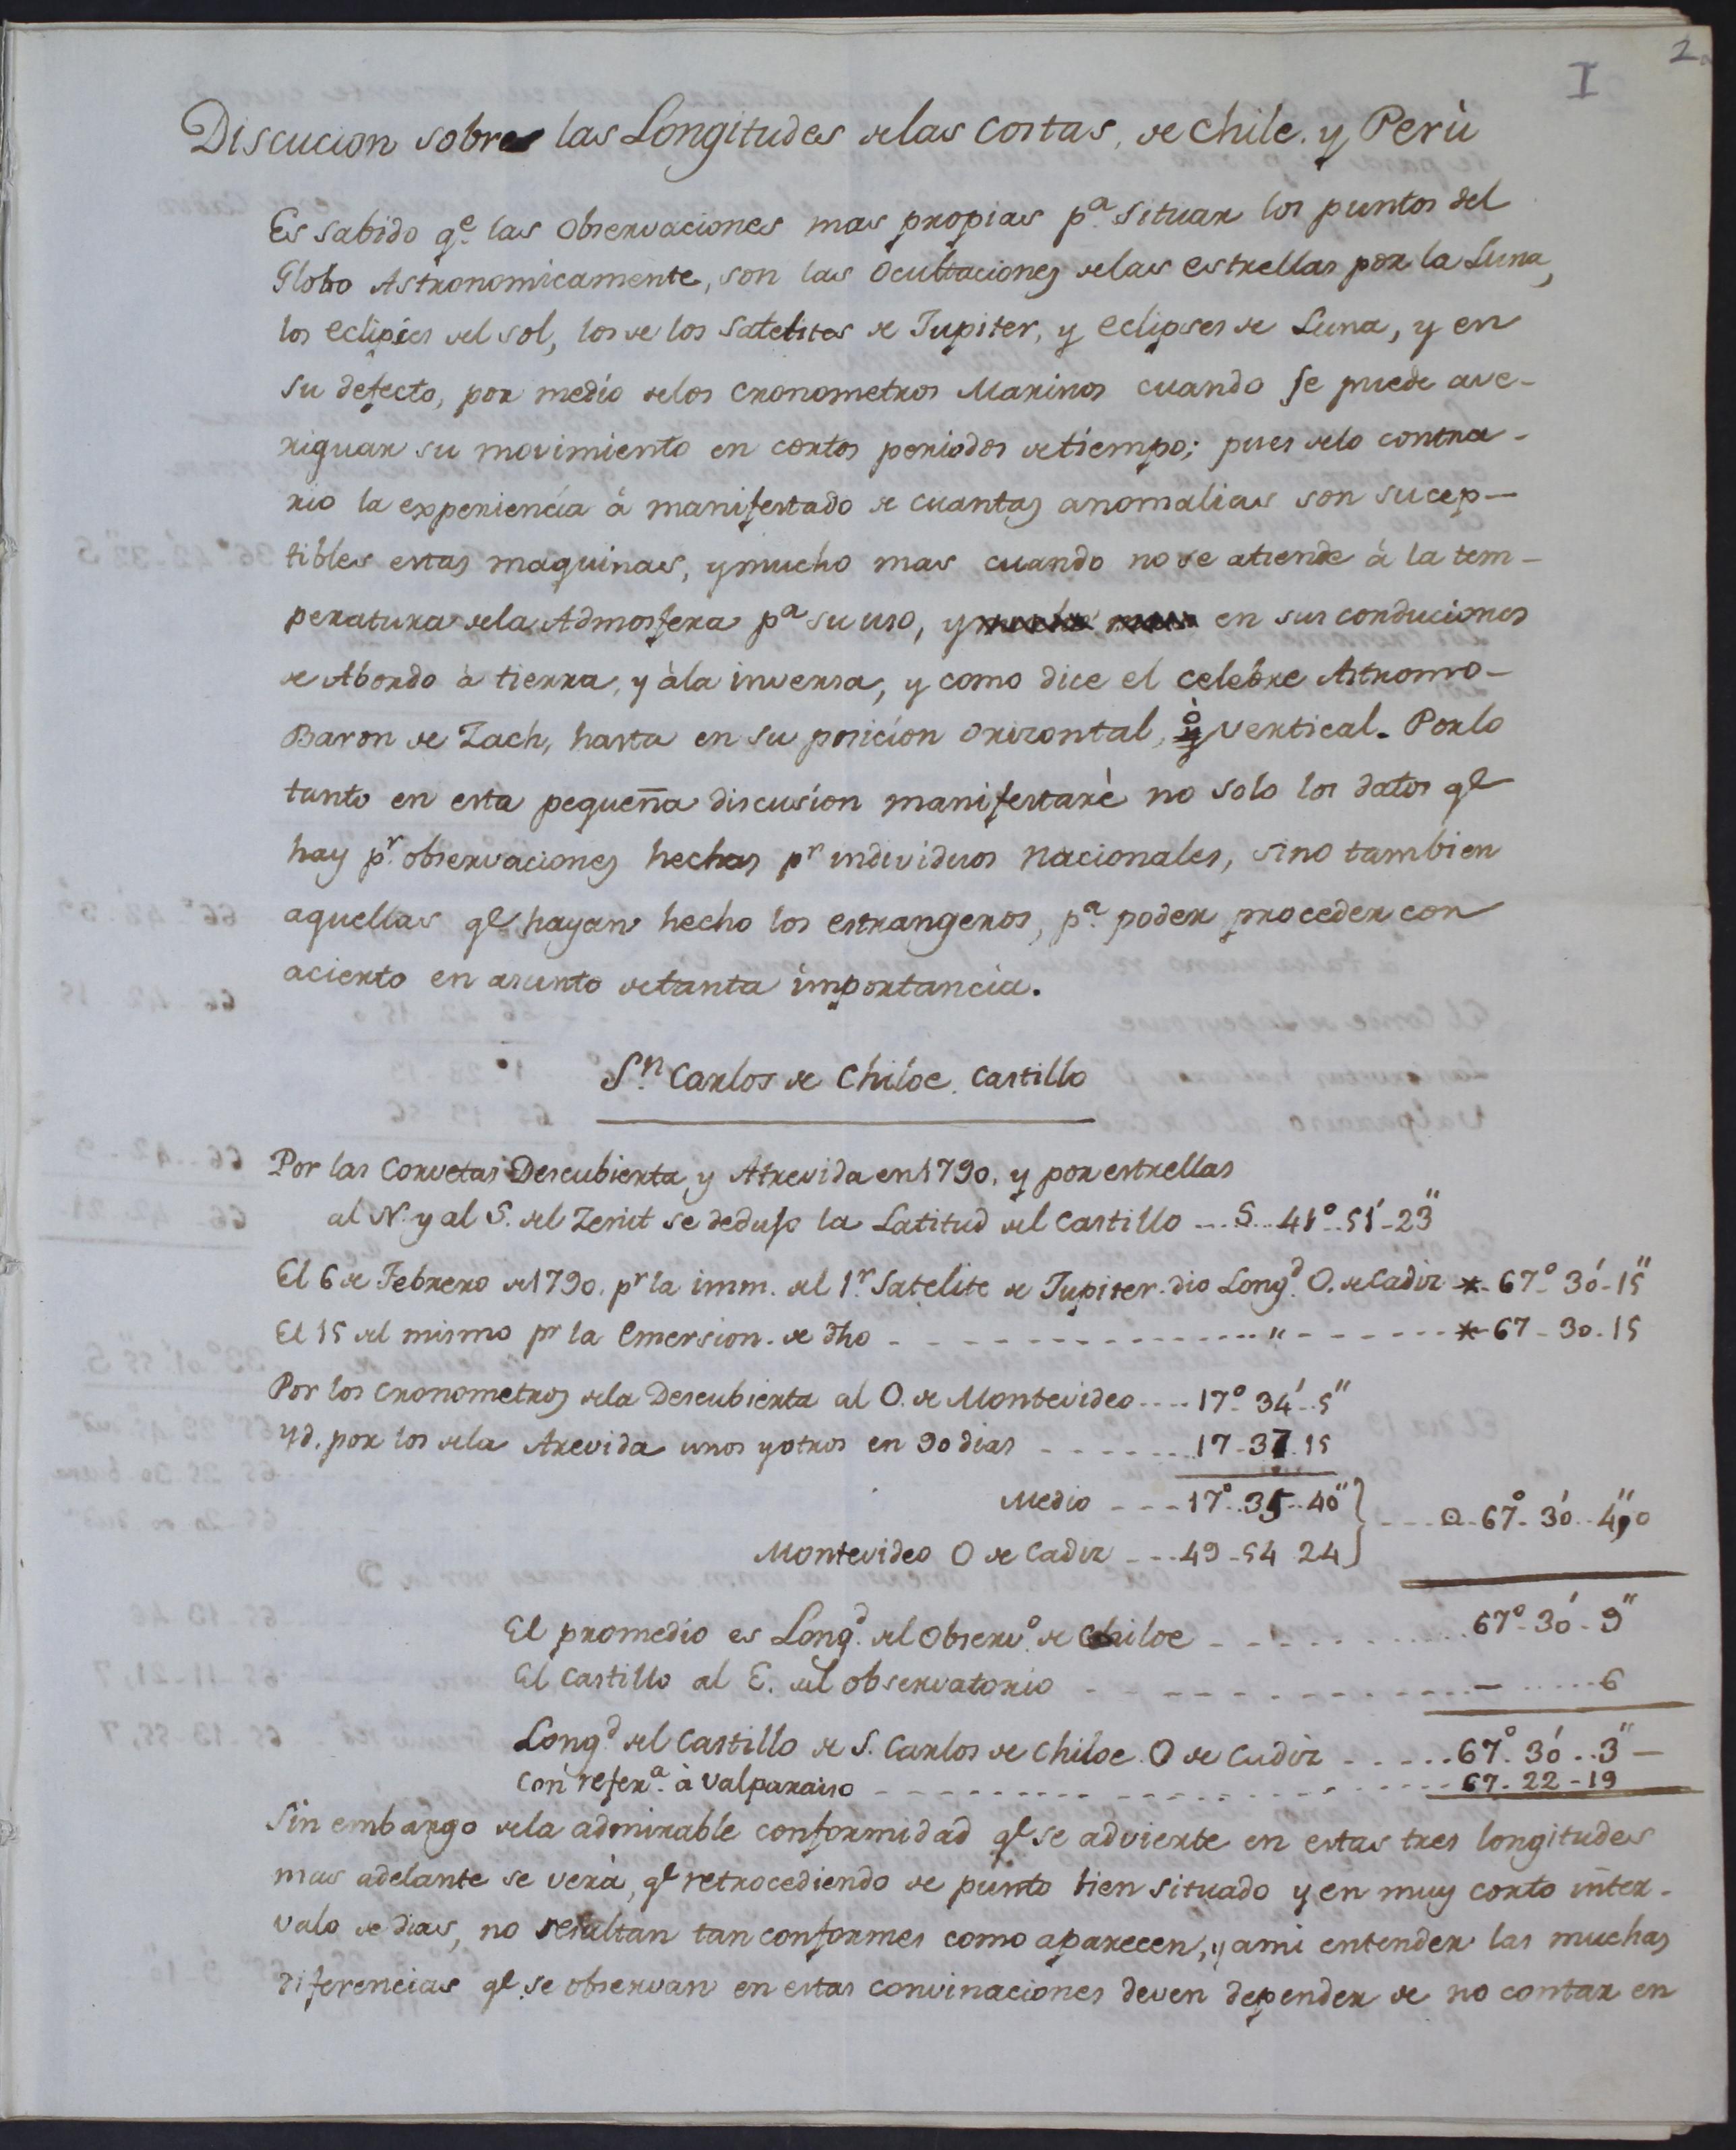 2
I
Discucion sobre las Longitudes delas costas, de chile. y Perù
Es sabido q.e las Observaciones mas propias p.a situar los puntos del
Globo Astronomicamente, son las Ocultaciones delas estrellas por la Luna,
los eclipses del sol, los de los Satelites de Jupiter, y eclipses de Luna, y en
su defecto, por medio delos Cronometros Marinos cuando se puede ave-
riguar su movimiento en cortos periodos detiempo; pues delo contra-
rio la experiencia à manifestado de cuantas anomalias son sucep-
tibles estas maquinas, ymucho mas cuando no se atiende à la tem-
peratura dela Admosfera p.a su uso, y en sus conduciones
de Abordo à tierra, y àla inversa, y como dice el celebre Astromo-
Baron de Zach, hasta en su posicion Orizontal, ò vertical. Porlo
tanto en esta pequeña discusion manifestarè no solo los datos qe
hay p.r observaciones hechas pr individuos nacionales, sino tambien
aquellas qe hayan hecho los estrangeros, p.a poder proceder con
acierto en asunto detanta importancia.
S.n Carlos de Chiloe. Castillo
Por las Corvetas Descubierta, y Atrevida en1790, y por estrellas
al N. y al S. del Zenit se dedujo la Latitud del Castillo --- S... 41°. 51'-23"
El 6 de Febrero de1790. pr la imm. del 1.r Satelite de Jupiter. dio Long.d O. de Cadiz *- 67°- 30'-15"
El 15 del mismo pr la Emersion. de dho - - - - - - - " - - - - - - *- 67 - 30. 15
Por los Cronometros dela Descubierta al O. de Montevideo .... 17°- 34'..5"
Yd. por los dela Atrevida unos yotros en 90 dias - - - - - - - 17 - 37. 15
Medio - - - - 17°..35..40" } - - - - 67°- 30'..4",0
Montevideo O de Cadiz - - - 49 - 54 24
El promedio es Long.d del Observ.o de Chiloe - - - - - - - - - 67°- 30'- 9"
El Castillo al E. del Observatorio - - - - - - - - - - - — ...... 6
Long.d del Castillo de S. Carlos de Chiloe. O de Cadiz - - - - ...67°. 30'..3" —
Con refer.a à Valparaiso - - - - - - - - - - - - - - - - 67. 22 - 19
Sin embargo dela admirable conformidad qe se advierte en estas tres longitudes
mas adelante se verà, qe retrocediendo de punto bien situado y en muy corto inter-
valo de dias, no resultan tan conformes como aparecen, y ami entender las muchas
diferencias qe se observan en estas convinaciones deven depender de no contar en